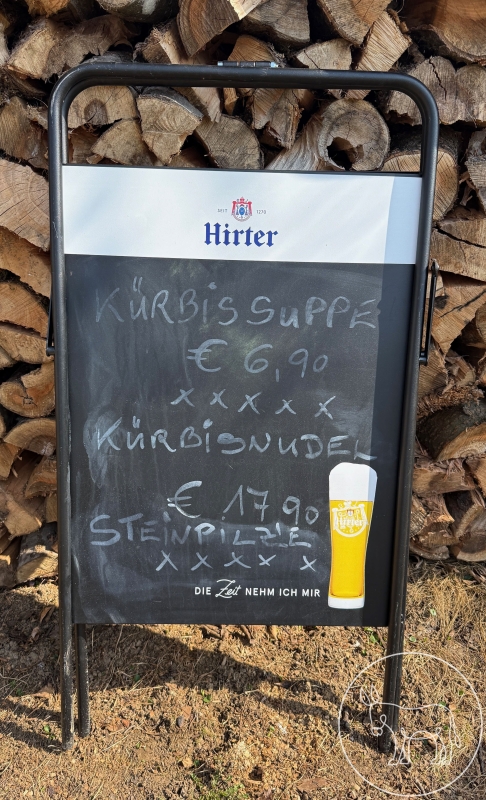 SEIT 1270
Hirter
KÜRBISSUPPE
€ 6,90
x x x x x
KÜRBISNUDEL
€ 17,90
STEINPILZE
x x x x x
Hirter
DIE Zeit NEHM ICH MIR